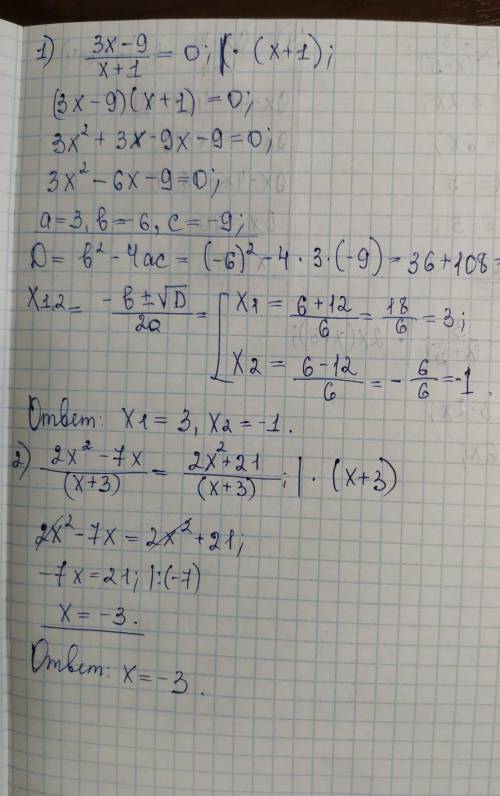 1) (3x-9)/(x+1) = 0; | · (x+1);
(3x-9)(x+1)=0;
3x² + 3x - 9x - 9 = 0;
3x² - 6x - 9 = 0;
a=3, в=-6, c=-9;
D = в² - 4ac = (-6)² - 4 · 3 · (-9) = 36+108=
x1,2 = (-в ± √D)/2a = [ x1 = (6+12)/6 = 18/6 = 3;
x2 = (6-12)/6 = -6/6 = -1.
Ответ: x1 = 3, x2 = -1.
2) (2x² - 7x)/(x+3) = (2x²+21)/(x+3); | · (x+3)
2x² - 7x = 2x² + 21;
-7x = 21; |:(-7)
x = -3.
Ответ: x = -3.